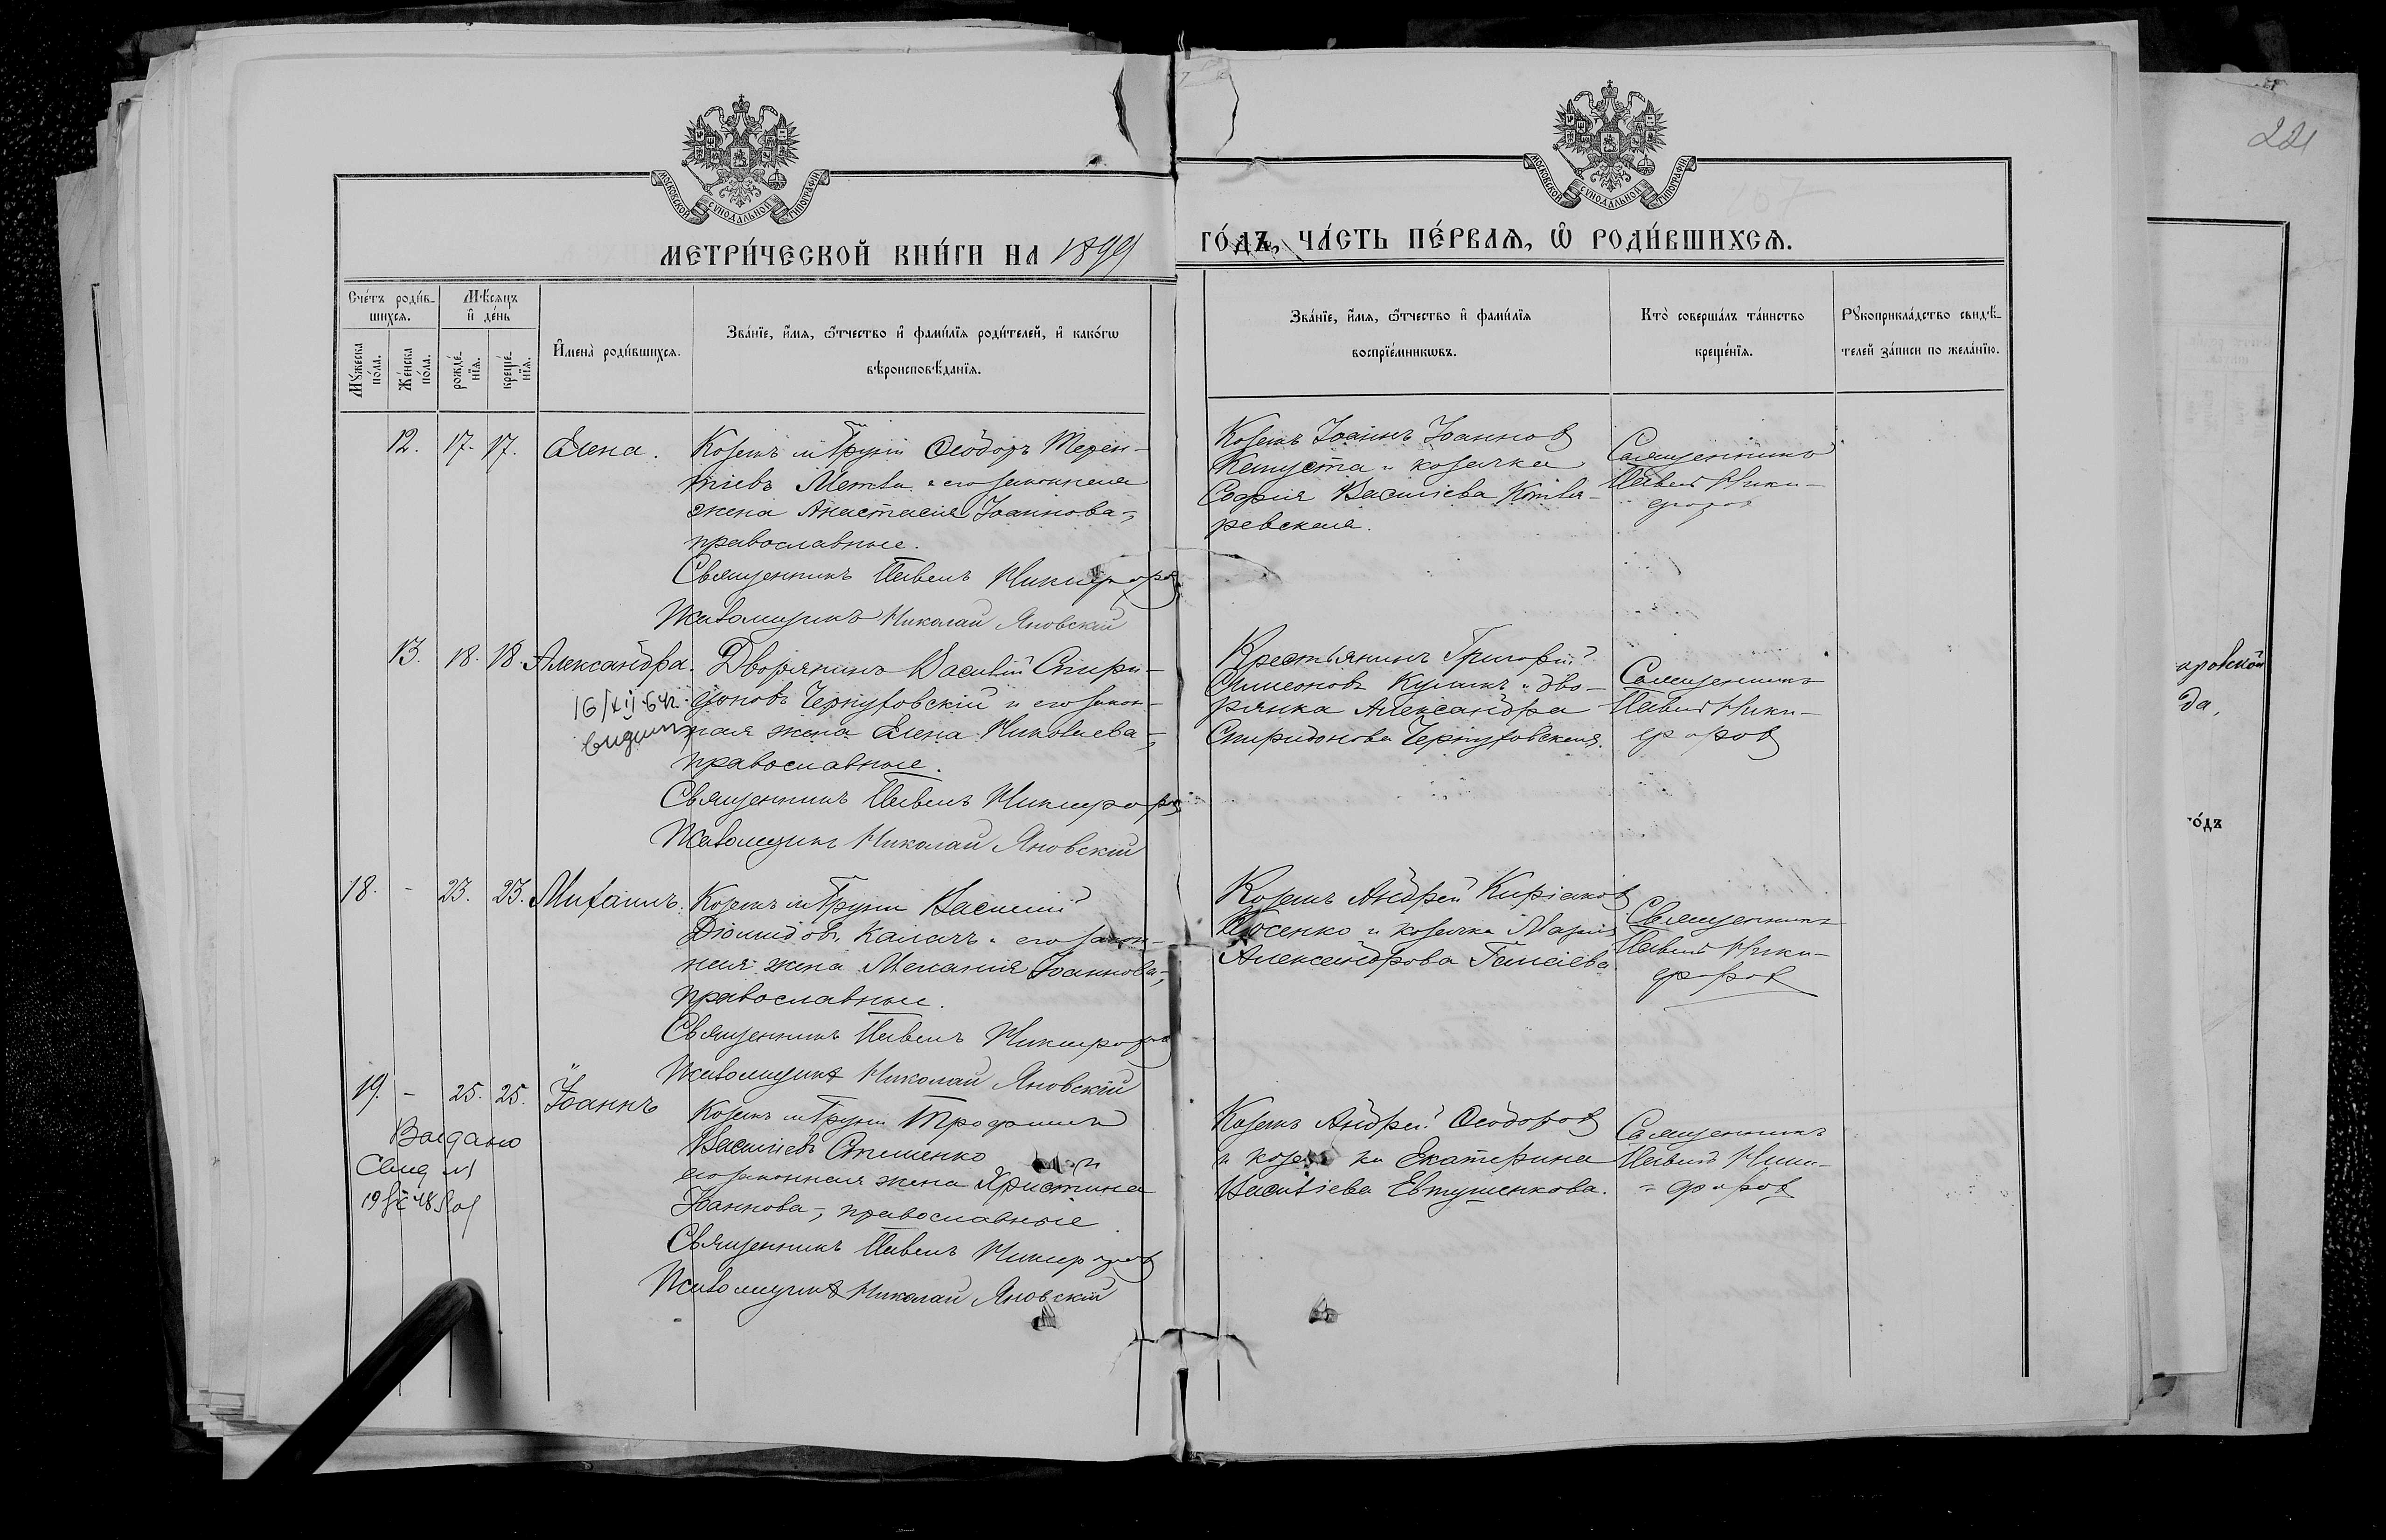 221
МОСКОВСКОЙ СѴНОДАЛЬНОЙ ТИПОГРАФІИ
МОСКОВСКОЙ СѴНОДАЛЬНОЙ ТИПОГРАФІИ
МЕТРИ́ЧЕСКОЙ КНИ́ГИ НА 1899
ГО́ДЪ, ЧА́СТЬ ПЕ́РВАѦ, Ѡ҆ РОДИ́ВШИХСѦ.
Сче́тъ роди́в-
шихсѧ.
Мꙋ́жеска по́ла.
Же́нска по́ла.
Мѣ́сѧцъ и҆ де́нь
рожде́-
нїѧ.
креще́-
нїѧ.
И҆мена̀ роди́вшихсѧ.
Зва́нїе, и҆́мѧ, ѻ҆́тчество и҆ фами́лїѧ роди́телей, и҆ како́гѡ
вѣроисповѣ́данїѧ.
Зва́нїе, и҆́мѧ, ѻ҆́тчество и҆ фами́лїѧ
воспрїе́мникѡвъ.
Кто̀ соверша́лъ та́инство
креще́нїѧ.
Рꙋкоприкла́дство свидѣ́-
телей за́писи по жела́нїю.
12. 17. 17. Елена.
Козакъ м Груни Ѳеодоръ Терен-
тіевъ Метва и его законная
жена Анастасія Іоаннова,
православные.
Священникъ Павелъ Никифоровъ
Псаломщикъ Николай Яновскій
Козакъ Іоаннъ Іоанновъ
Капуста и козачка
Софія Василіева Котля-
ревская.
Священникъ
Павелъ Ники-
форовъ
13. 18. 18. Александра.
16/XII-64г.
видим
Дворянинъ Василій Спири-
доновъ Черпуховскій и его закон-
ная жена Елена Николаева,
православные.
Священникъ Павелъ Никифоровъ
Псаломщикъ Николай Яновскій
Крестьянинъ Григорій
Симеоновъ Куликъ и дво-
рянка Александра
Спиридонова Черпуховская.
Священникъ
Павелъ Ники-
форовъ
18. - 23. 23. Михаилъ.
Козакъ м Груни Василій
Діомидовъ Калачъ и его закон-
ная жена Меланія Іоаннова,
православные.
Священникъ Павелъ Никифоровъ
Псаломщикъ Николай Яновскій
Козакъ Андрей Киріаковъ
Косенко и козачка Марія
Александрова Галаева
Священникъ
Павелъ Ники-
форовъ
19. - 25. 25. Іоаннъ
Видано
Свид
Козакъ м Груни Трофимъ
Василіевъ Стешенко и
его законная жена Христина
Іоаннова, православные
Священникъ Павелъ Никифоровъ
Псаломщикъ Николай Яновскій
Козакъ Андрей Ѳеодоровъ
и козачка Екатерина
Василіева Евтушенкова.
Священникъ
Павелъ Ники-
форовъ
да,
го́дъ